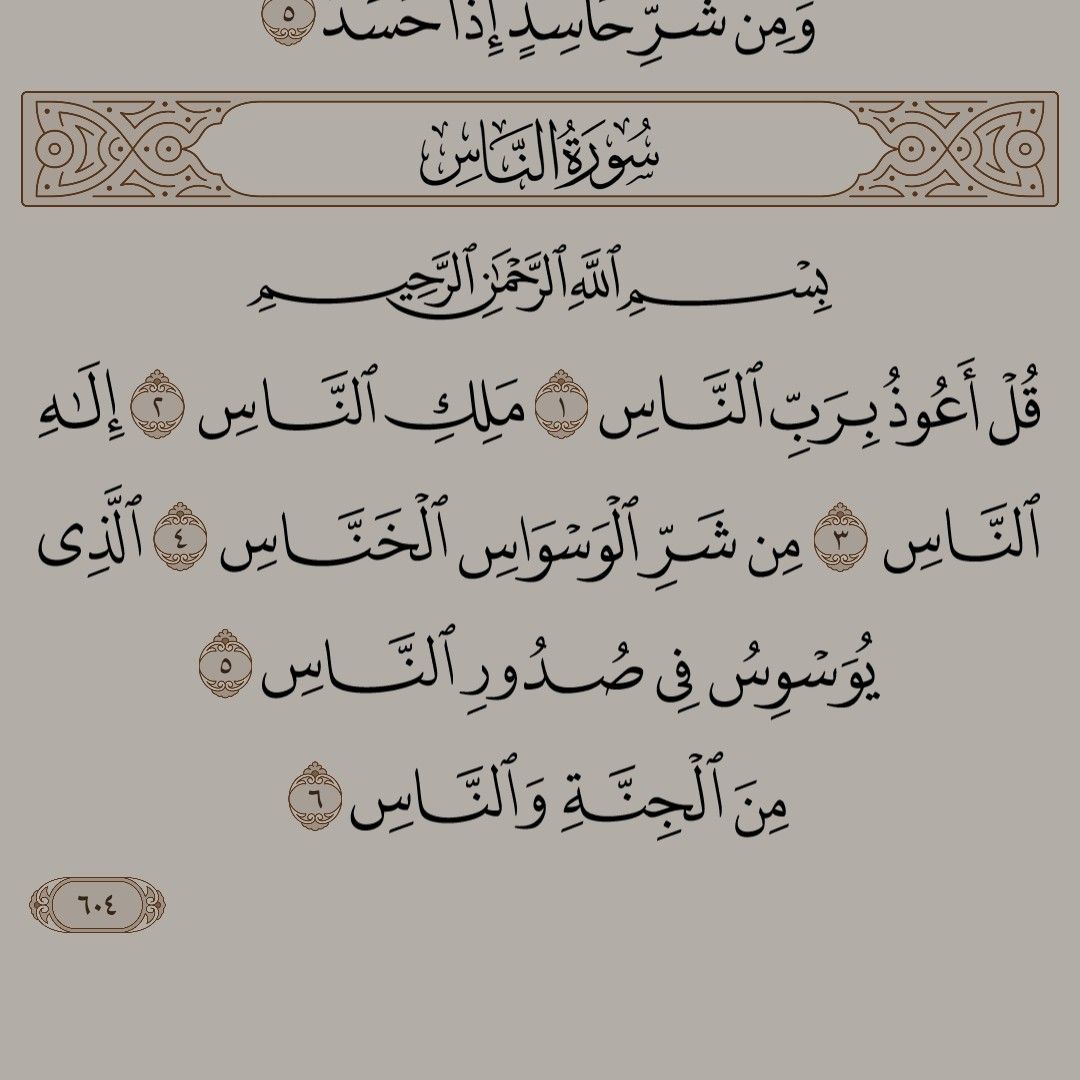 وَمِن شَرِّ حَاسِدٍ إِذَا حَسَدَ ٥
سُورَةُ النَّاسِ
بِسْمِ ٱللَّهِ ٱلرَّحْمَٰنِ ٱلرَّحِيمِ
قُلْ أَعُوذُ بِرَبِّ ٱلنَّاسِ ١ مَلِكِ ٱلنَّاسِ ٢ إِلَٰهِ
ٱلنَّاسِ ٣ مِن شَرِّ ٱلْوَسْوَاسِ ٱلْخَنَّاسِ ٤ ٱلَّذِى
يُوَسْوِسُ فِى صُدُورِ ٱلنَّاسِ ٥
مِنَ ٱلْجِنَّةِ وَٱلنَّاسِ ٦
٦٠٤